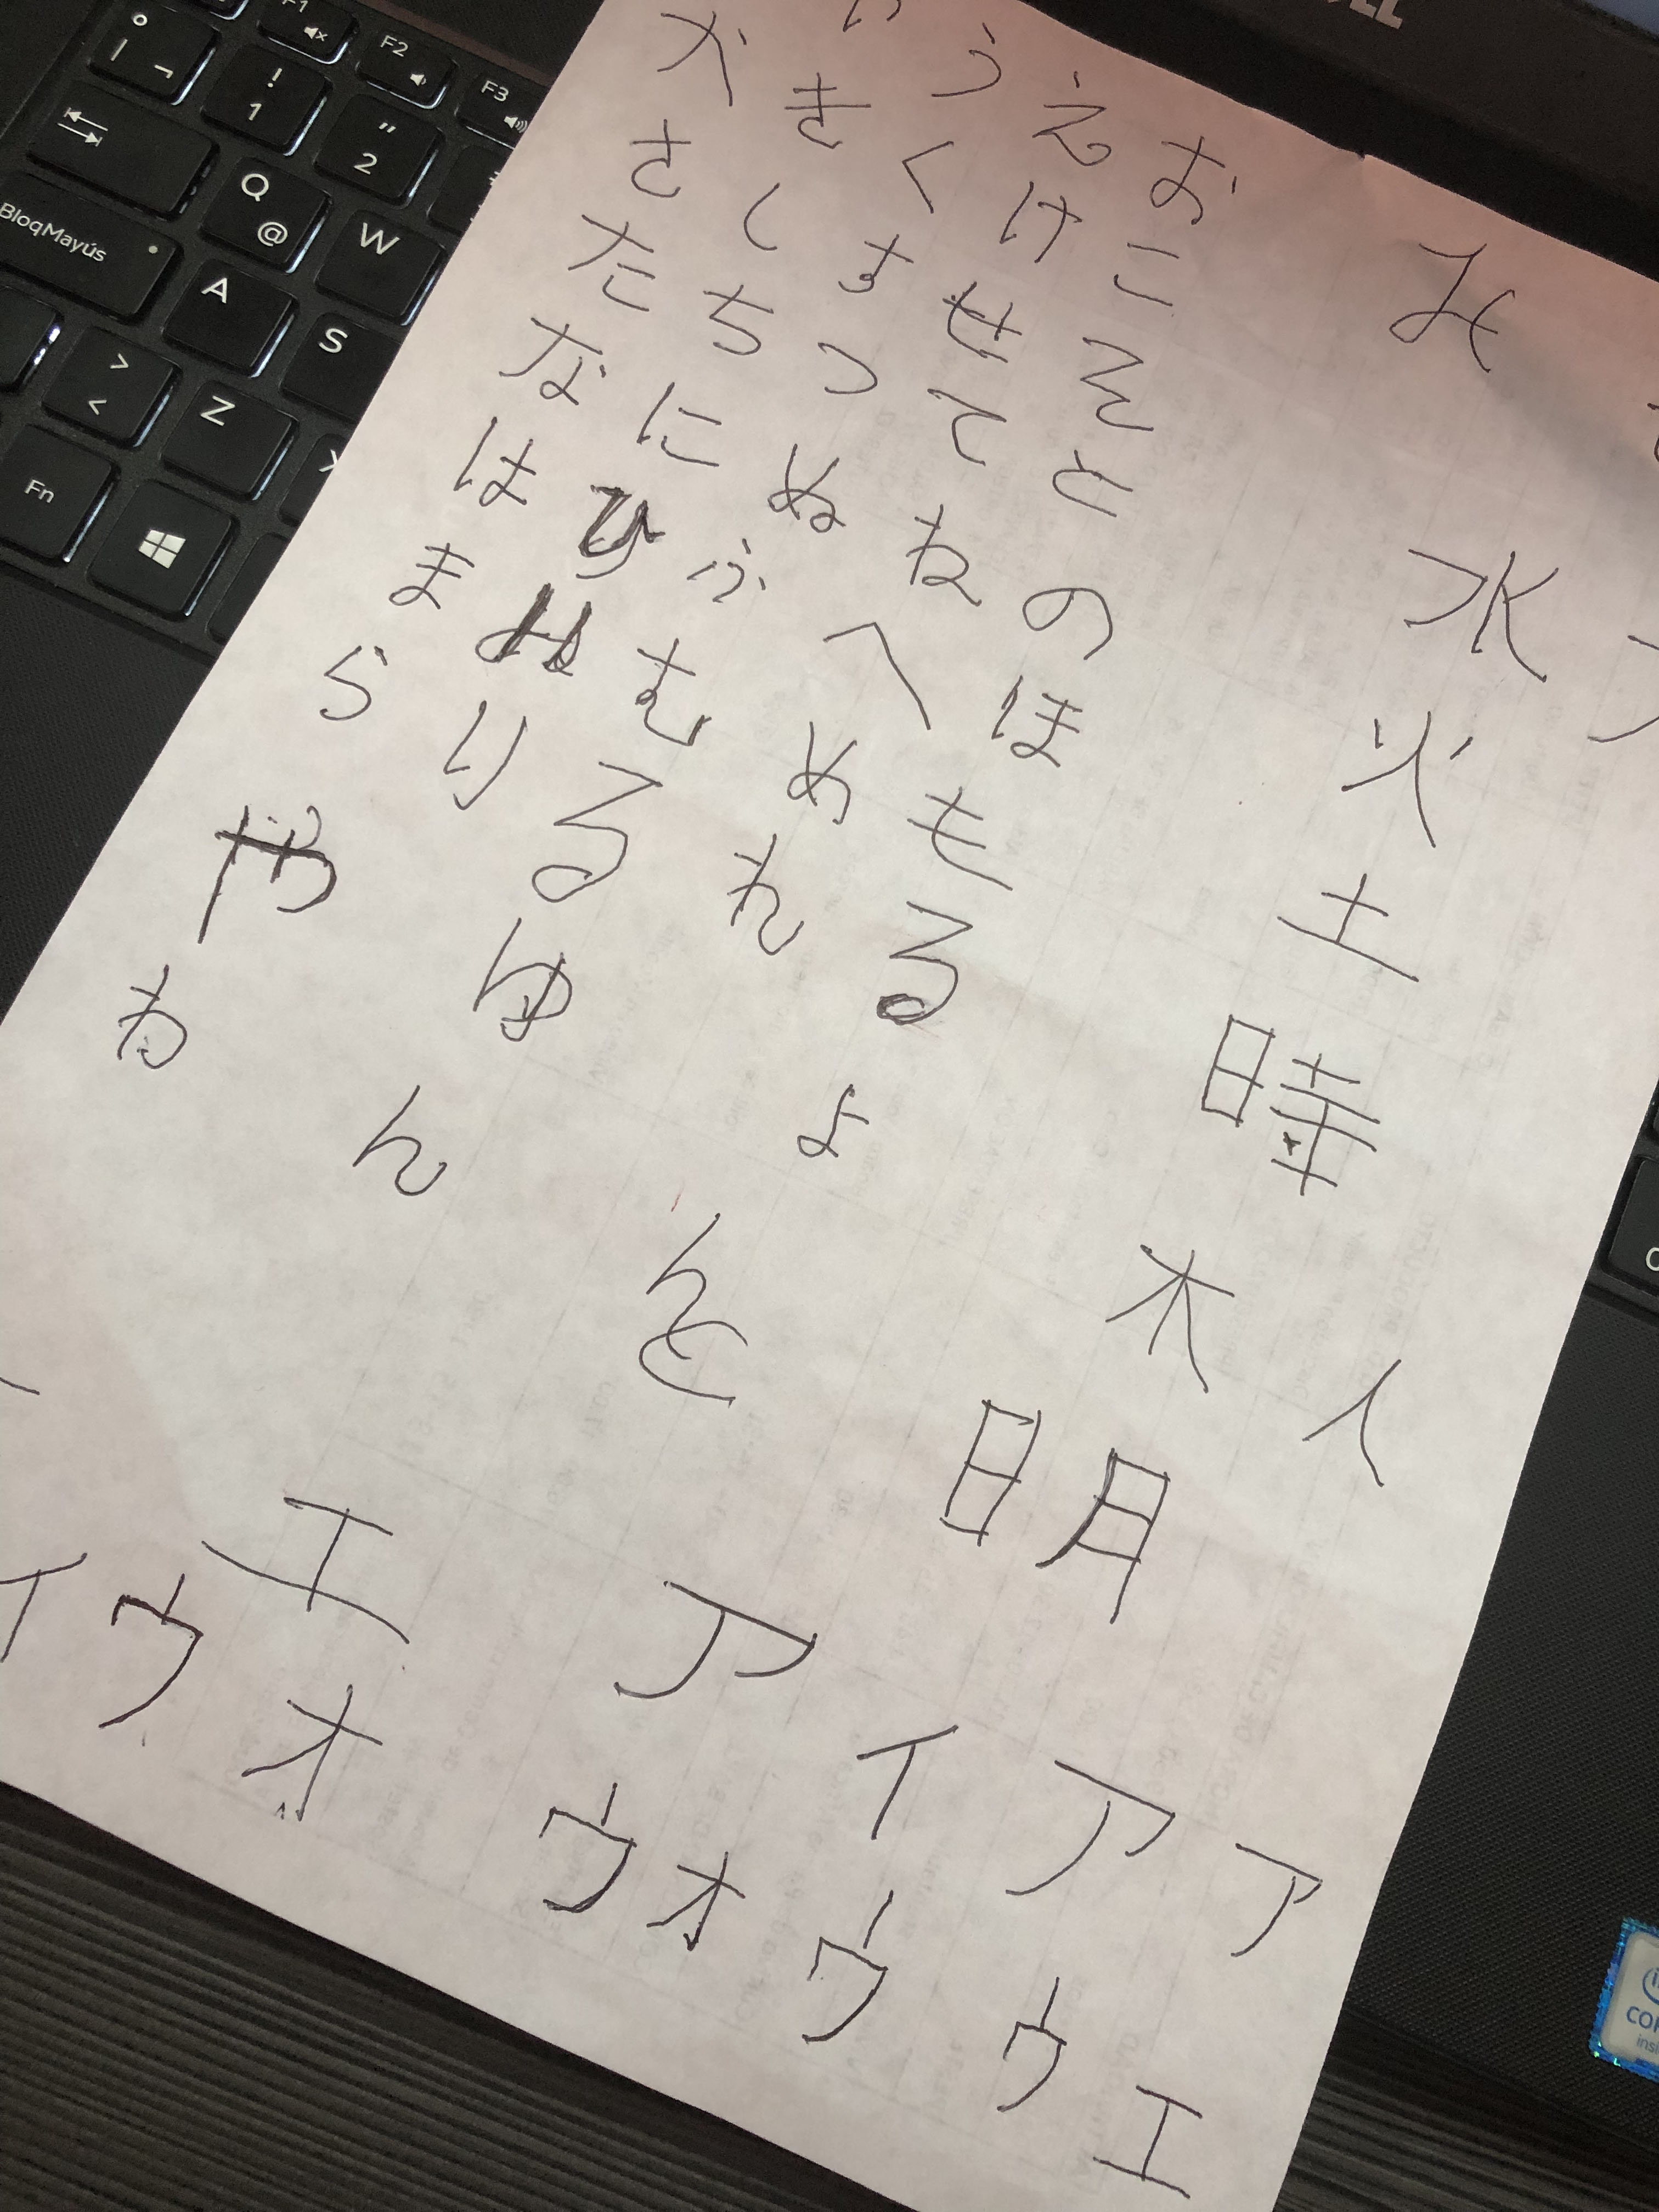 う え お
か き く け こ
さ し す せ そ
た ち つ て と
な に ぬ ね の
は ひ ふ へ ほ
ま み む め も
ら り る れ る
や ゆ よ
わ ん んと
み
水
火
土
時
木 人
明
エ ア イ ア ア
イ ウ オ ウ オ ウ ウ エ
F1
F2
F3
! 1
" 2
Q @
W
BloqMayús
A
S
> <
Z
Fn